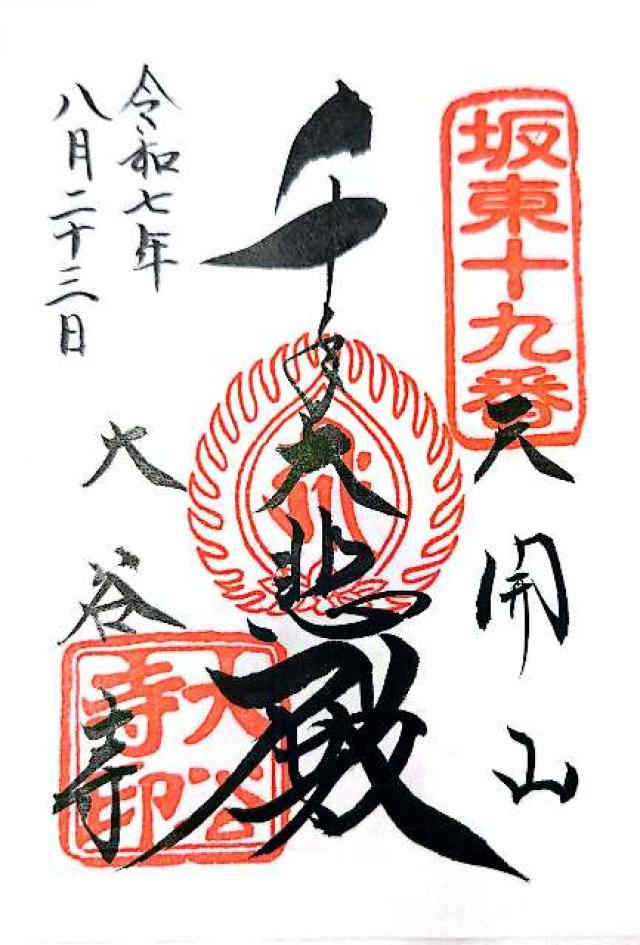 坂東十九番
天開山
千手大悲殿
令和七年
八月二十三日
大谷寺
大谷寺印